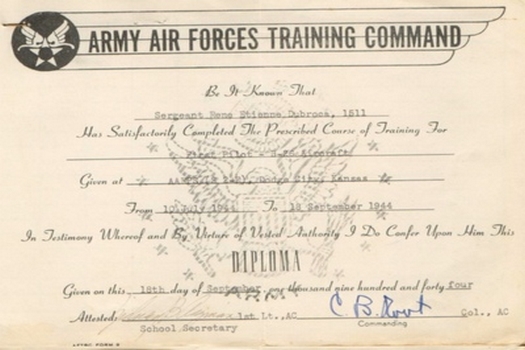 ARMY AIR FORCES TRAINING COMMAND
Be It Known That
Sergeant Rene Etienne Dubroca, 1511
Has Satisfactorily Completed The Prescribed Course of Training For
First Pilot - Aircraft
Given at Dodge City, Kansas
From 10 July 1944 To 18 September 1944
In Testimony Whereof and By Virtue of Vested Authority I Do Confer Upon Him This
DIPLOMA
Given on this 18th day of September, one thousand nine hundred and forty four
ARMY
Attested: 1st Lt., AC C. B. Root Col., AC
School Secretary Commanding
AFTRC FORM